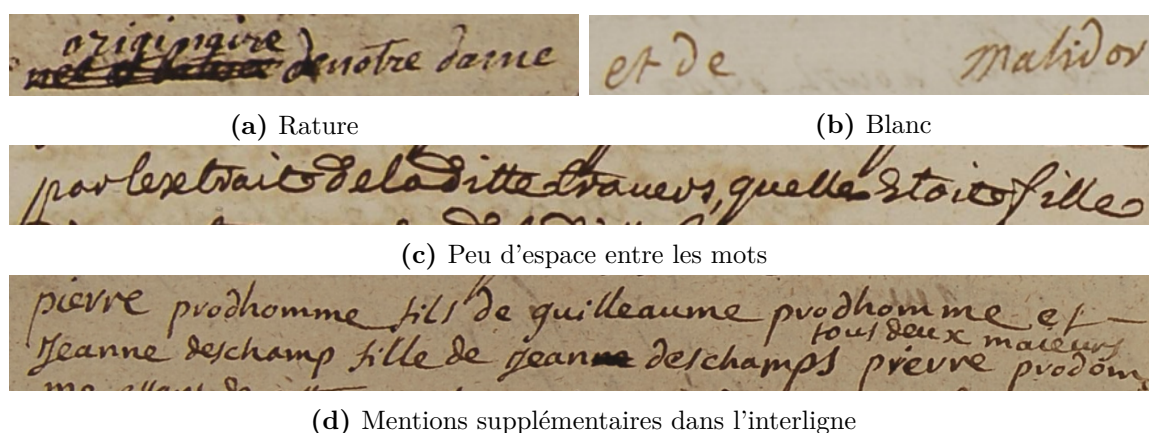 originaire
denotre dame
et de Malidor
(a) Rature
(b) Blanc
par lextrait dela ditte travers, quelle Etoit fille
(c) Peu d'espace entre les mots
pierre prodhomme fils de guilleaume prodhomme et
tous deux maieurs
Jeanne deschamp fille de Jeanne deschamps pierre prodom
(d) Mentions supplémentaires dans l'interligne